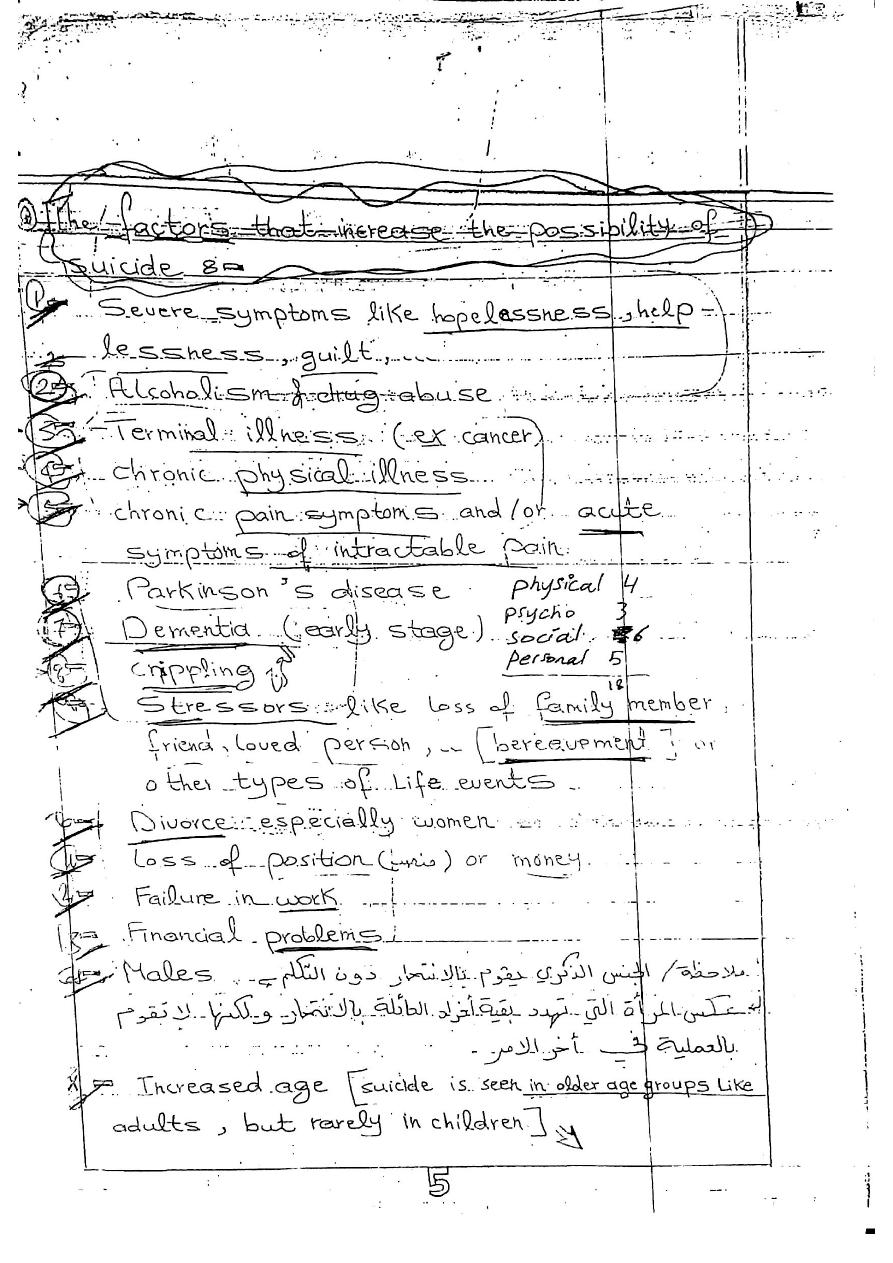 The factors that increase the possibility of
suicide :-
1- Severe symptoms like hopelessness, help-
lessness, guilt, ...
2- Alcoholism & drug abuse
3- Terminal illness (ex cancer)
4- chronic physical illness
5- chronic pain symptoms and/or acute
symptoms of intractable pain.
6- Parkinson's disease
7- Dementia (early stage)
8- crippling
physical 4
psycho 3
social 6
personal 5
18
9- Stressors like loss of family member,
friend, loved person, ... [bereavement] or
other types of life events
10- Divorce especially women
11- Loss of position () or money.
12- Failure in work
13- Financial problems
14- Males ملاحظة / الجنس الذكري يقوم بالانتحار دون التكلم
عكس المرأة التي تهدد بقية أفراد العائلة بالانتحار ولكنها لا تقوم
بالعملية في آخر الامر.
Increased age [suicide is seen in older age groups like
adults, but rarely in children]
5